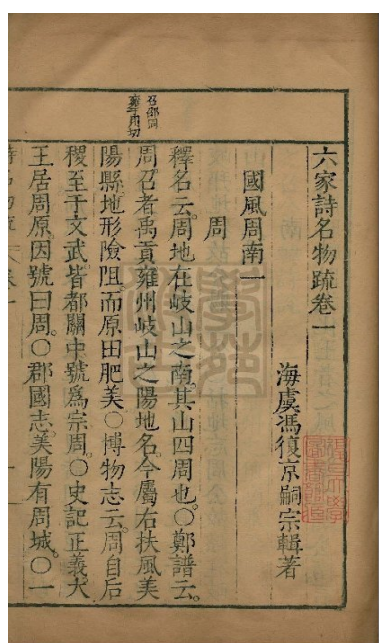 六家詩名物疏卷一
海虞馮復京嗣宗輯著
國風周南一
周
釋名云周地在岐山之南其山四周也○鄭譜云
周召者禹貢雍州岐山之陽地名今屬右扶風美
陽縣地形險阻而原田肥美○博物志云周自后
稷至于文武皆都關中號爲宗周○史記正義太
王居周原因號曰周○郡國志美陽有周城○一